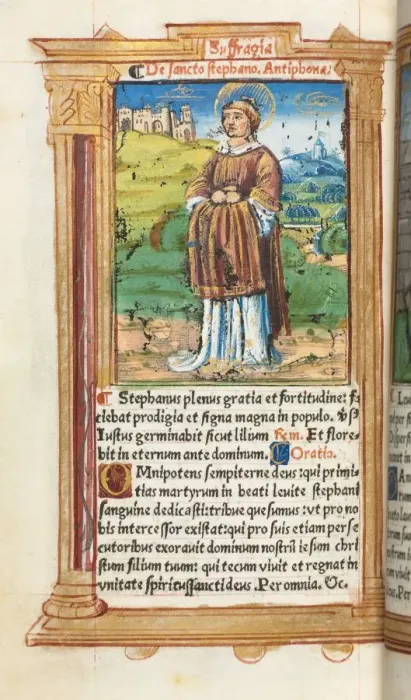 Suffragia
De sancto stephano. Antiphona:
Stephanus plenus gratia et fortitudine: fa
ciebat prodigia et signa magna in populo.
Iustus germinabit sicut lilium Et flore-
bit in eternum ante dominum. Oratio.
OMnipotens sempiterne deus: qui primi-
tias martyrum in beati leuite stephani
sanguine dedicasti: tribue quesumus: vt pro no
bis intercessor existat: qui pro suis etiam perse
cutoribus exorauit dominum nostrū iesum chri
stum filium tuum: qui tecum viuit et regnat in
vnitate spiritussancti deus. Per omnia. &c.